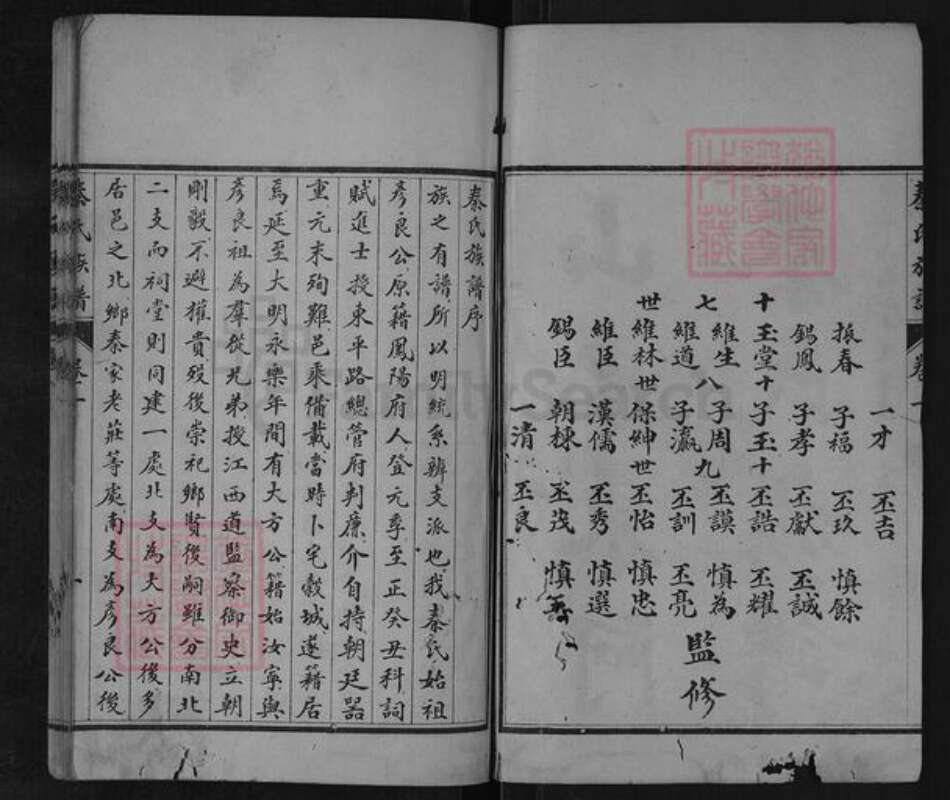 振春
錫鳳
十玉堂
維生
七維道
世維林
維臣
錫臣
一才
子福
子孝
十子玉
八子周
子瀛
世保紳
漢儒
朝棟
一清
丕吉
丕玖
丕獻
十丕誥
九丕謨
丕訓
世丕怡
丕秀
丕茂
丕良
慎餘
丕誠
丕耀
慎為
丕亮
慎忠
慎選
監修
秦氏族譜序
族之有譜所以明統系辨支派也我秦氏始祖
彥良公原籍鳳陽府人登元季至正癸丑科詞
賦進士授東平路總管府判廉介自持朝廷器
重元末殉難邑乘備載當時卜宅穀城遂籍居
焉延至大明永樂年間有大方公籍始汝寧與
彥良祖為羣從兄弟授江西道監察御史立朝
剛毅不避權貴歿後崇祀鄉賢後嗣雖分南北
二支而祠堂則同建一處北支為大方公後多
居邑之北鄉秦家老莊等處南支為彥良公後
秦氏族譜 卷一